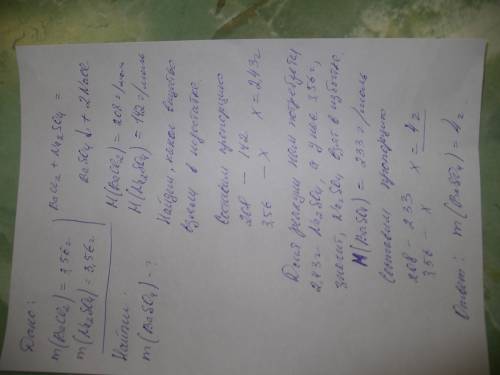 Дано:
m(BaCl₂) = 3,56г
m(Na₂SO₄) = 3,56г
Найти:
m(BaSO₄) - ?
BaCl₂ + Na₂SO₄ =
BaSO₄↓ + 2NaCl
M(BaCl₂) = 208 г/моль
M(Na₂SO₄) = 142 г/моль
Найдем, какое вещество
взяли в недостатке.
Составим пропорцию
208 – 142
3,56 – x x = 2,43г
Для реакции нам потребуется
2,43г Na₂SO₄ а у нас 3,56г,
значит, Na₂SO₄ взят в избытке.
M(BaSO₄) = 233 г/моль
Составим пропорцию
208 – 233 x = 4г
3,56 – x
Ответ: m(BaSO₄) = 4г.